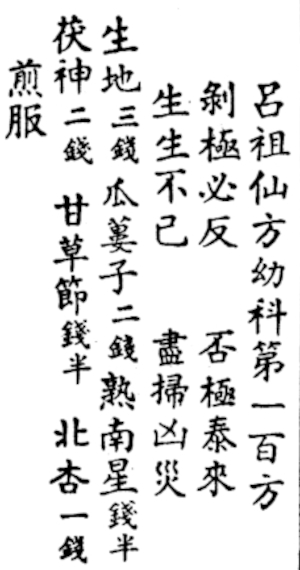 呂祖仙方幼科第一百方
剝極必反　否極泰來
生生不已　盡掃凶災
生地三錢瓜蔞子二錢熟南星錢半
茯神二錢　甘草節錢半　北杏一錢
煎服